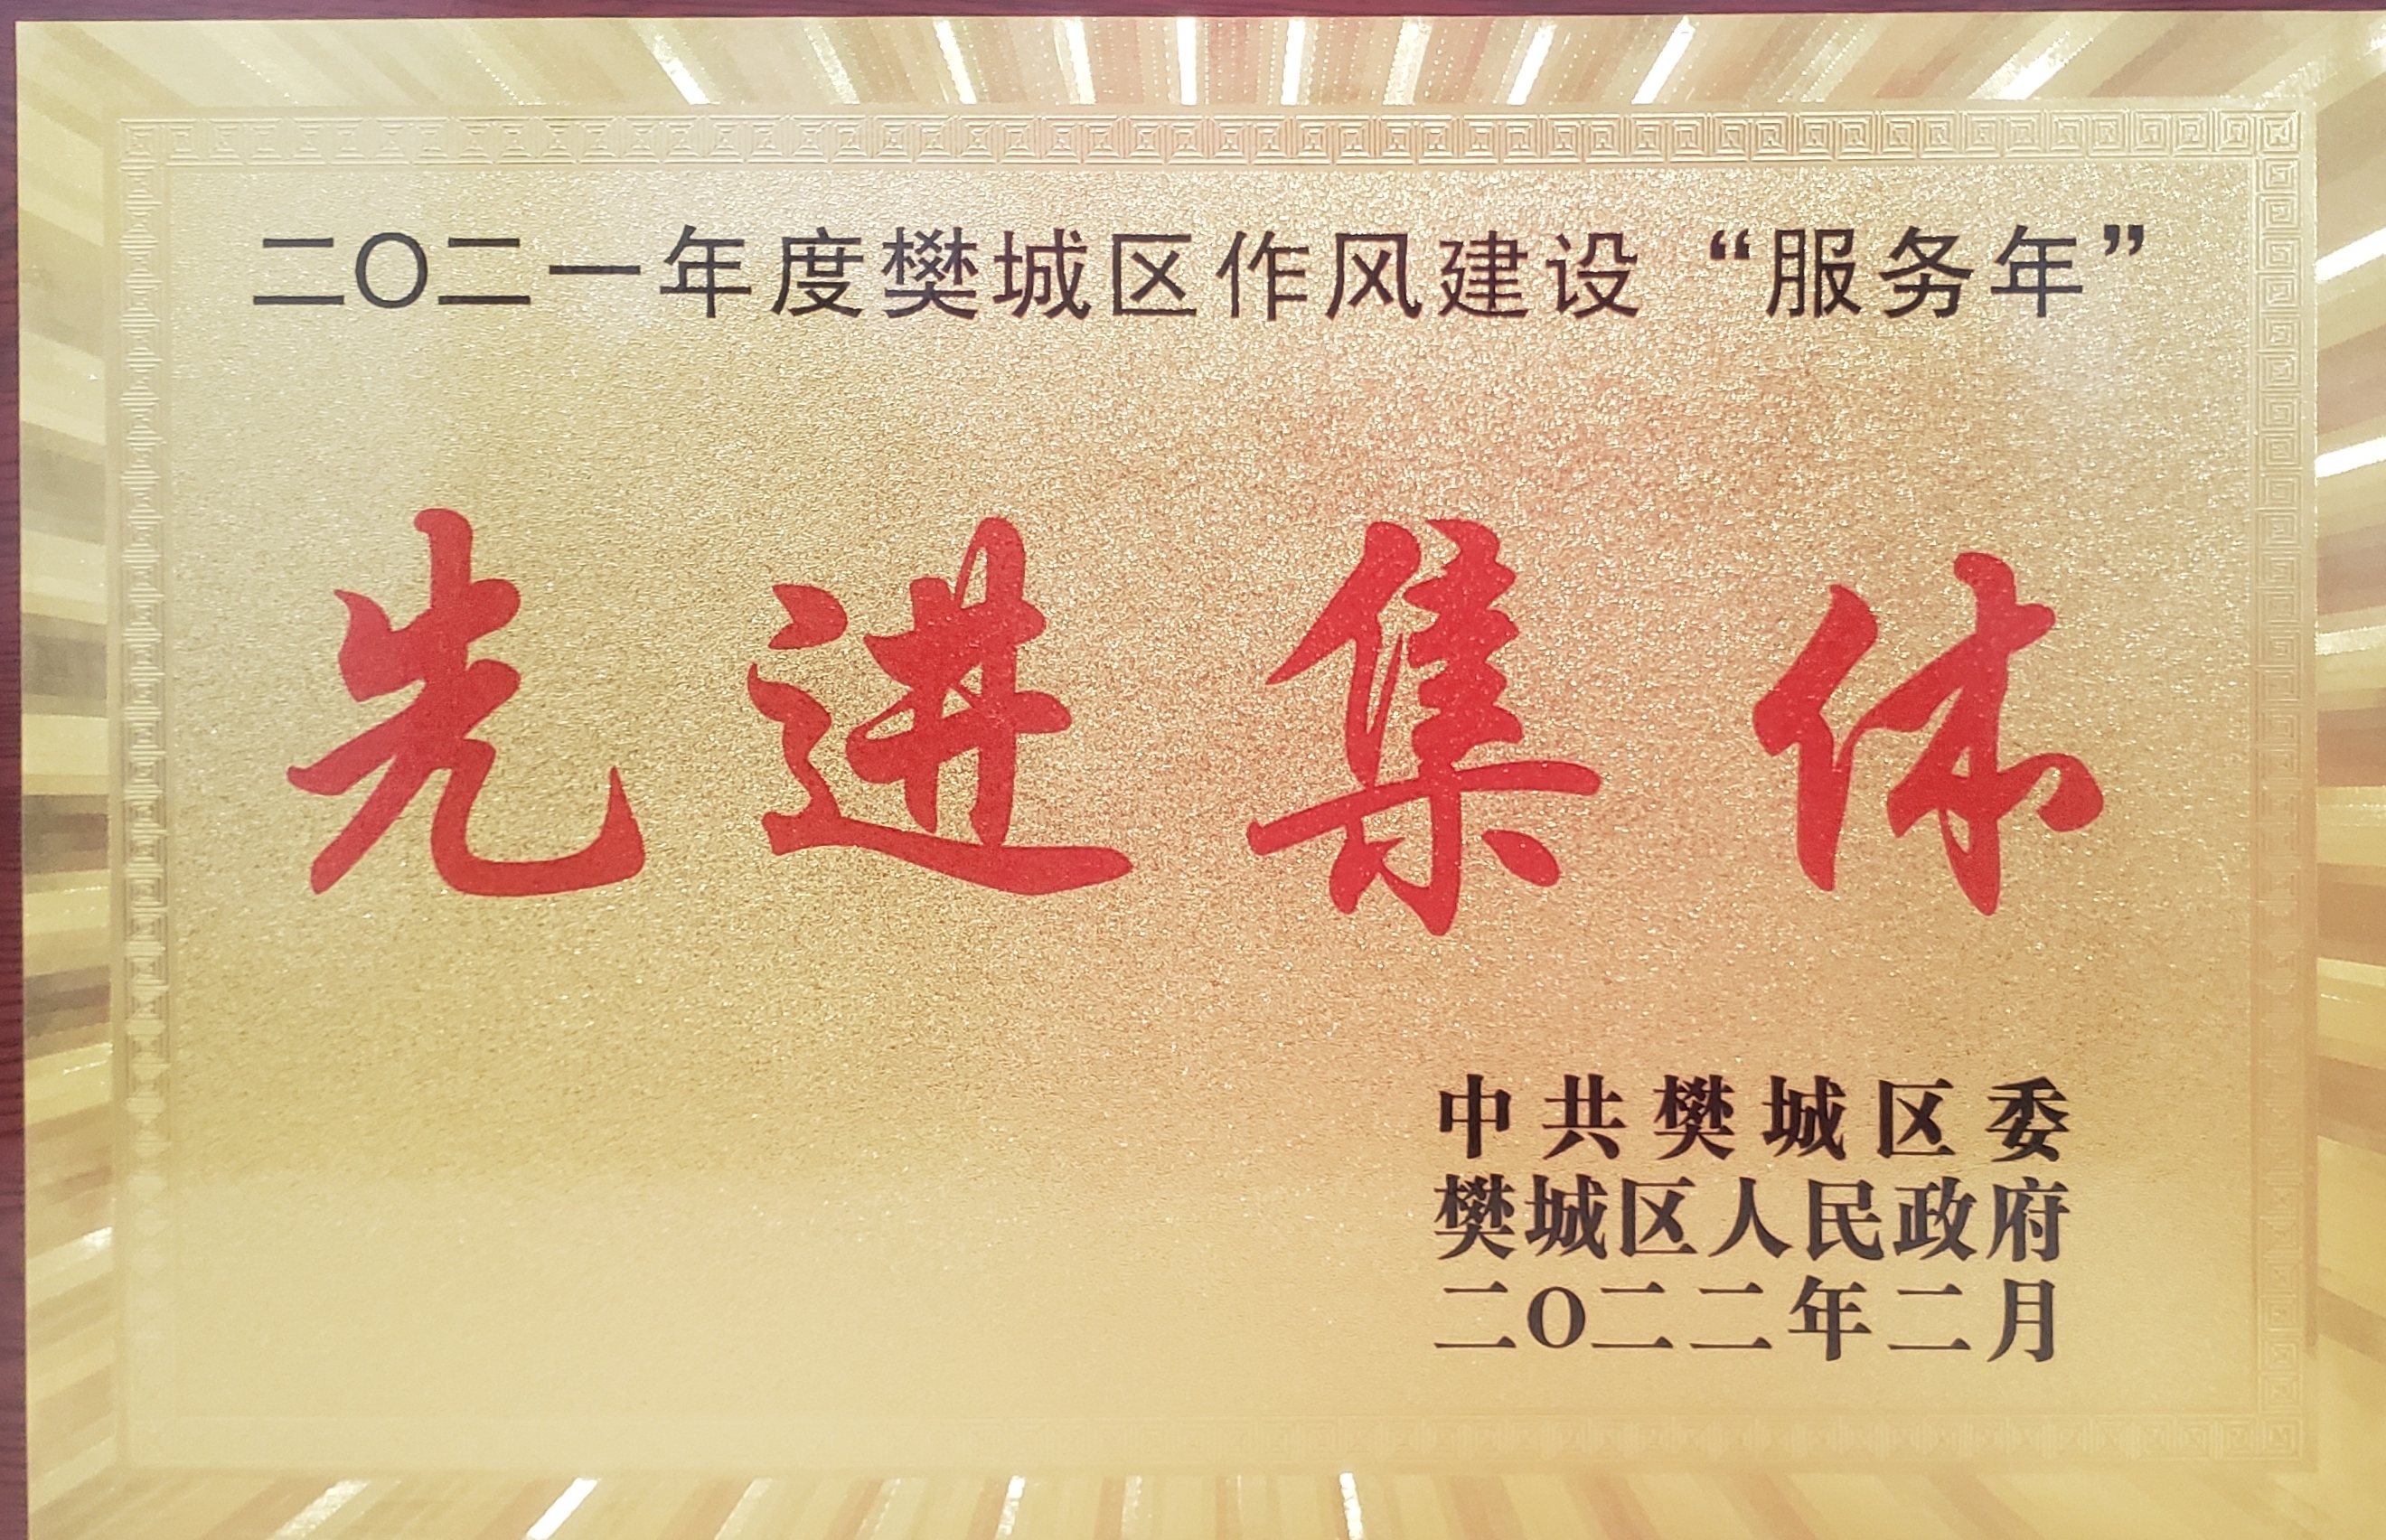 二〇二一年度樊城区作风建设“服务年”
先进集体
中共樊城区委
樊城区人民政府
二〇二二年二月